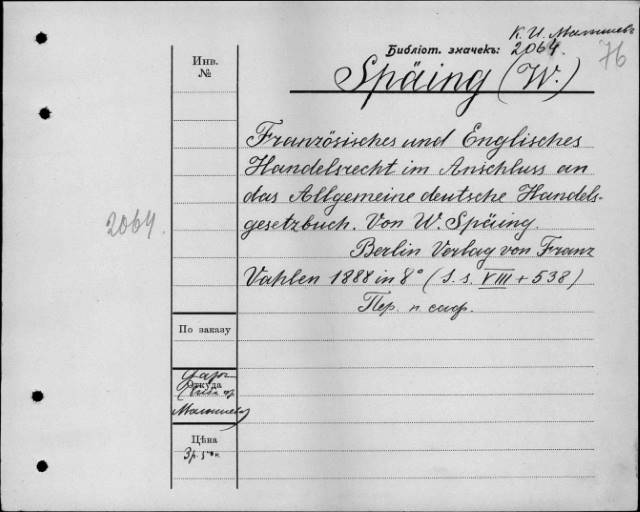 К. И. Малышев
Библіот. значекъ: 2064.
76
Späing (W.)
Инв.
№
Französisches und Englisches
Handelsrecht im Anschluss an
das Allgemeine deutsche Handels-
gesetzbuch. Von W. Späing.
2064.
Berlin Verlag von Franz
Vahlen 1888 in 8° (S. s. VIII + 538)
Пер. п. саф.
По заказу
Даръ
Откуда
Малышева
Цѣна
3 р.